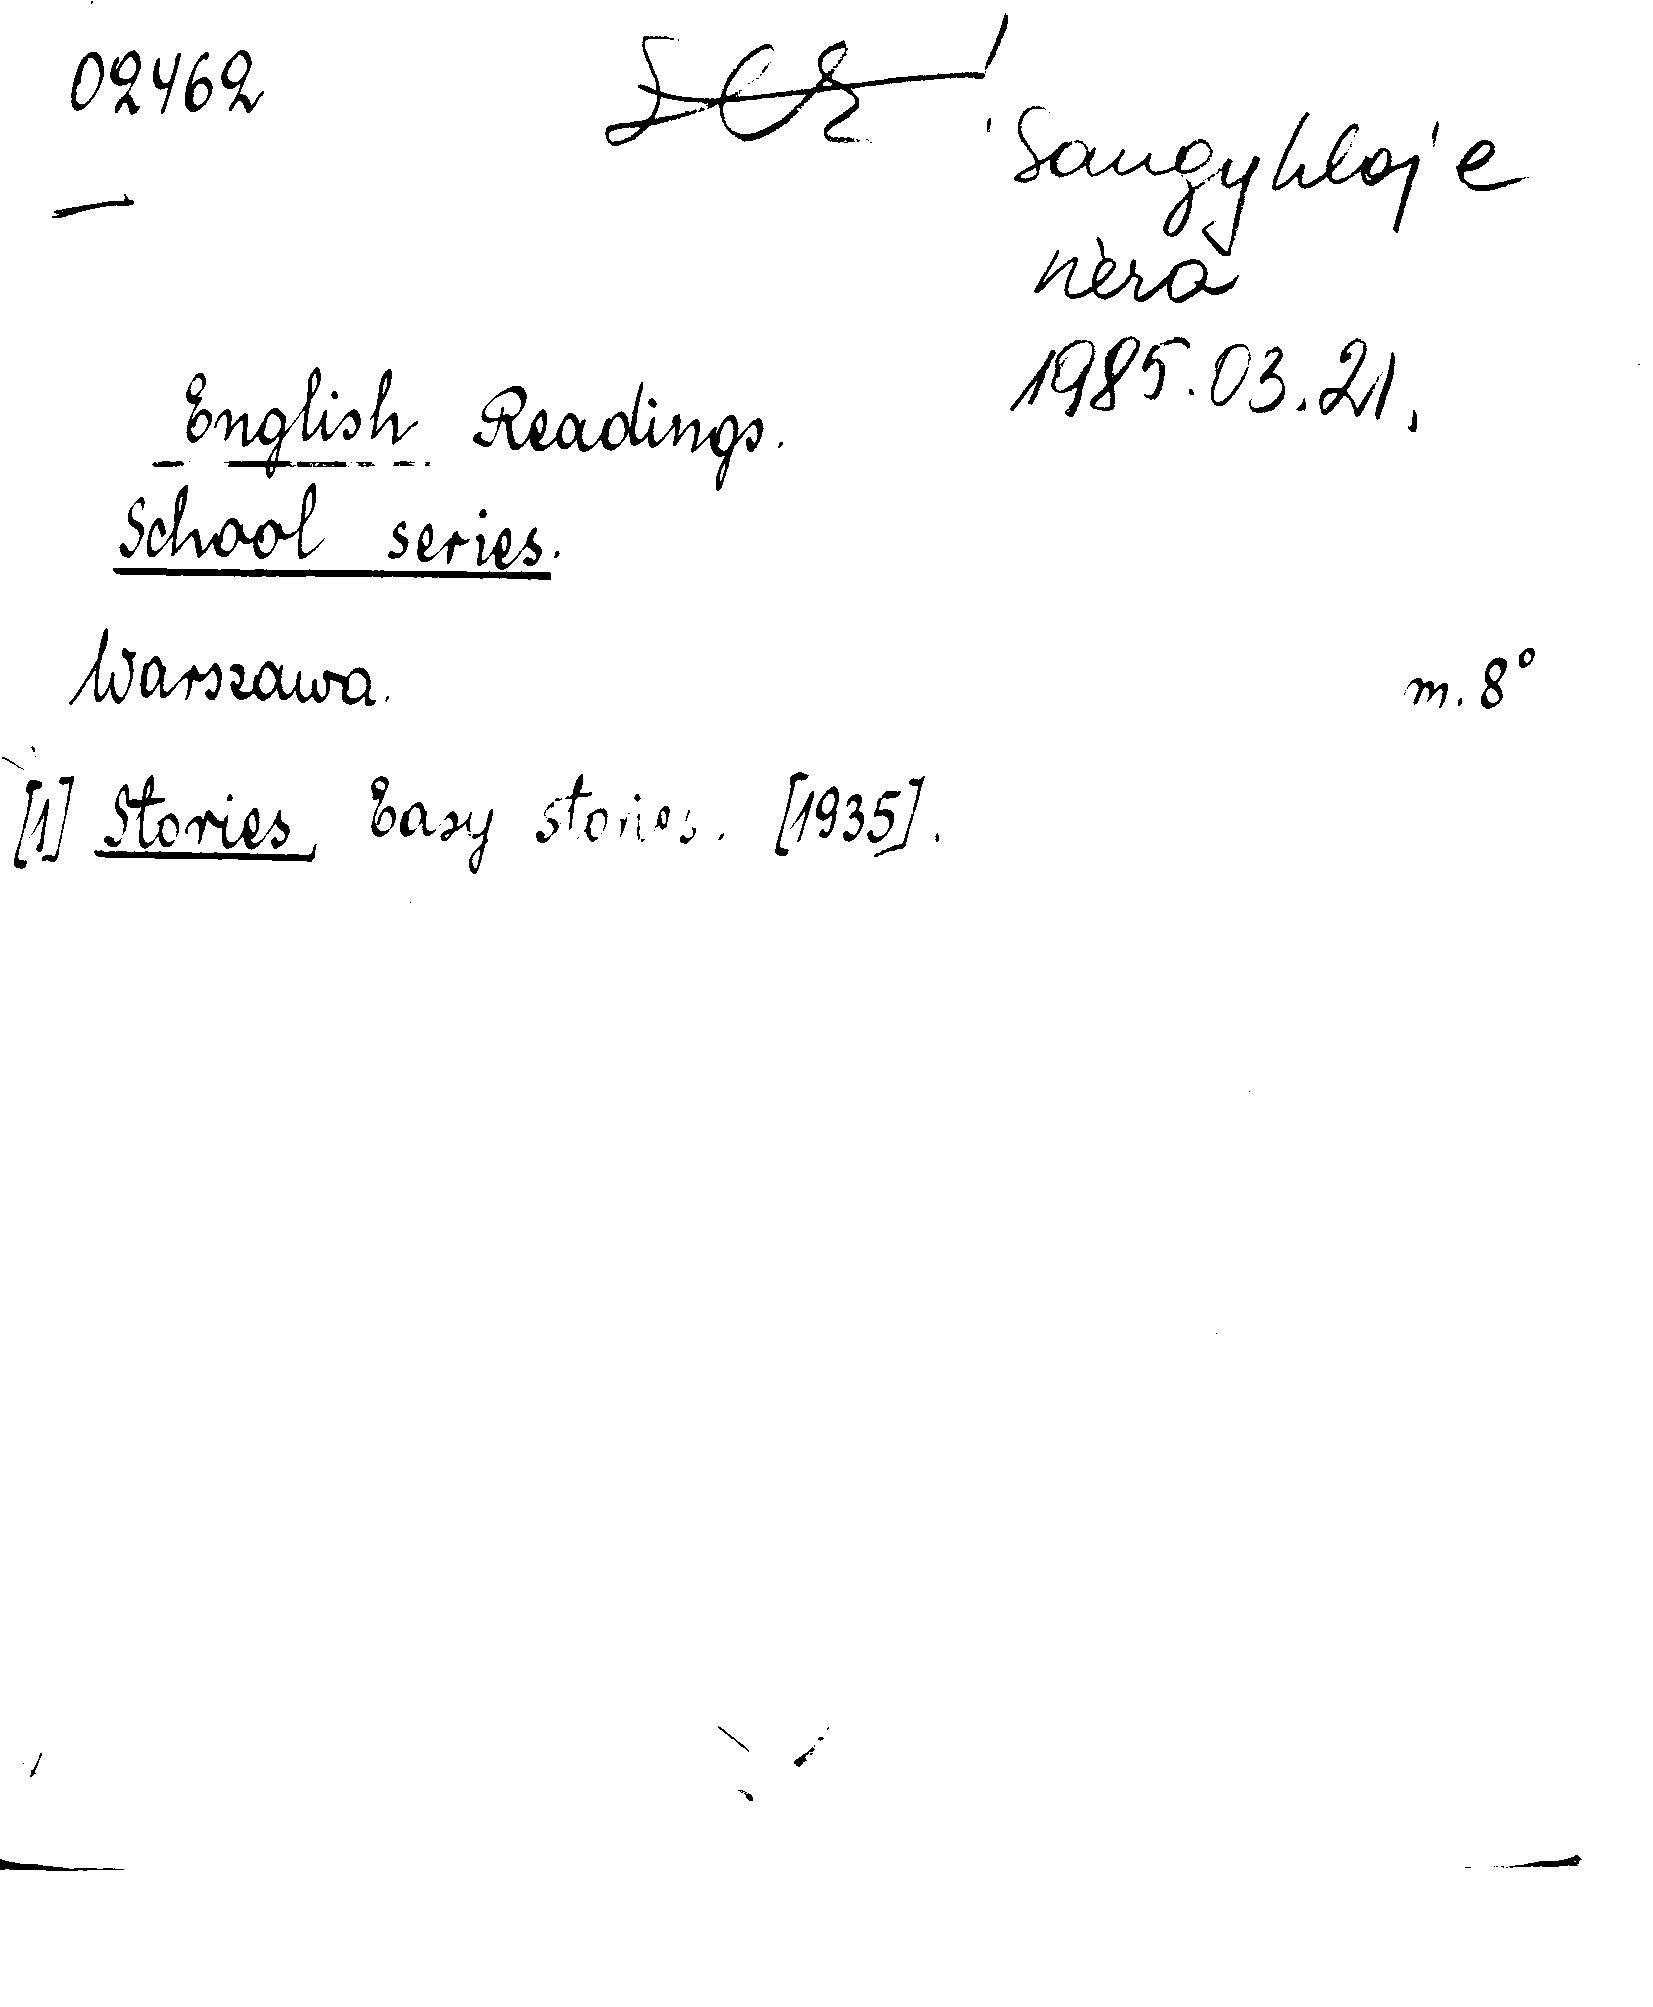 02462
Saugykloje
nėra
1985.03.21.
English Readings.
School series.
Warszawa. m. 8°
[1] Stories, Easy stories. [1935].